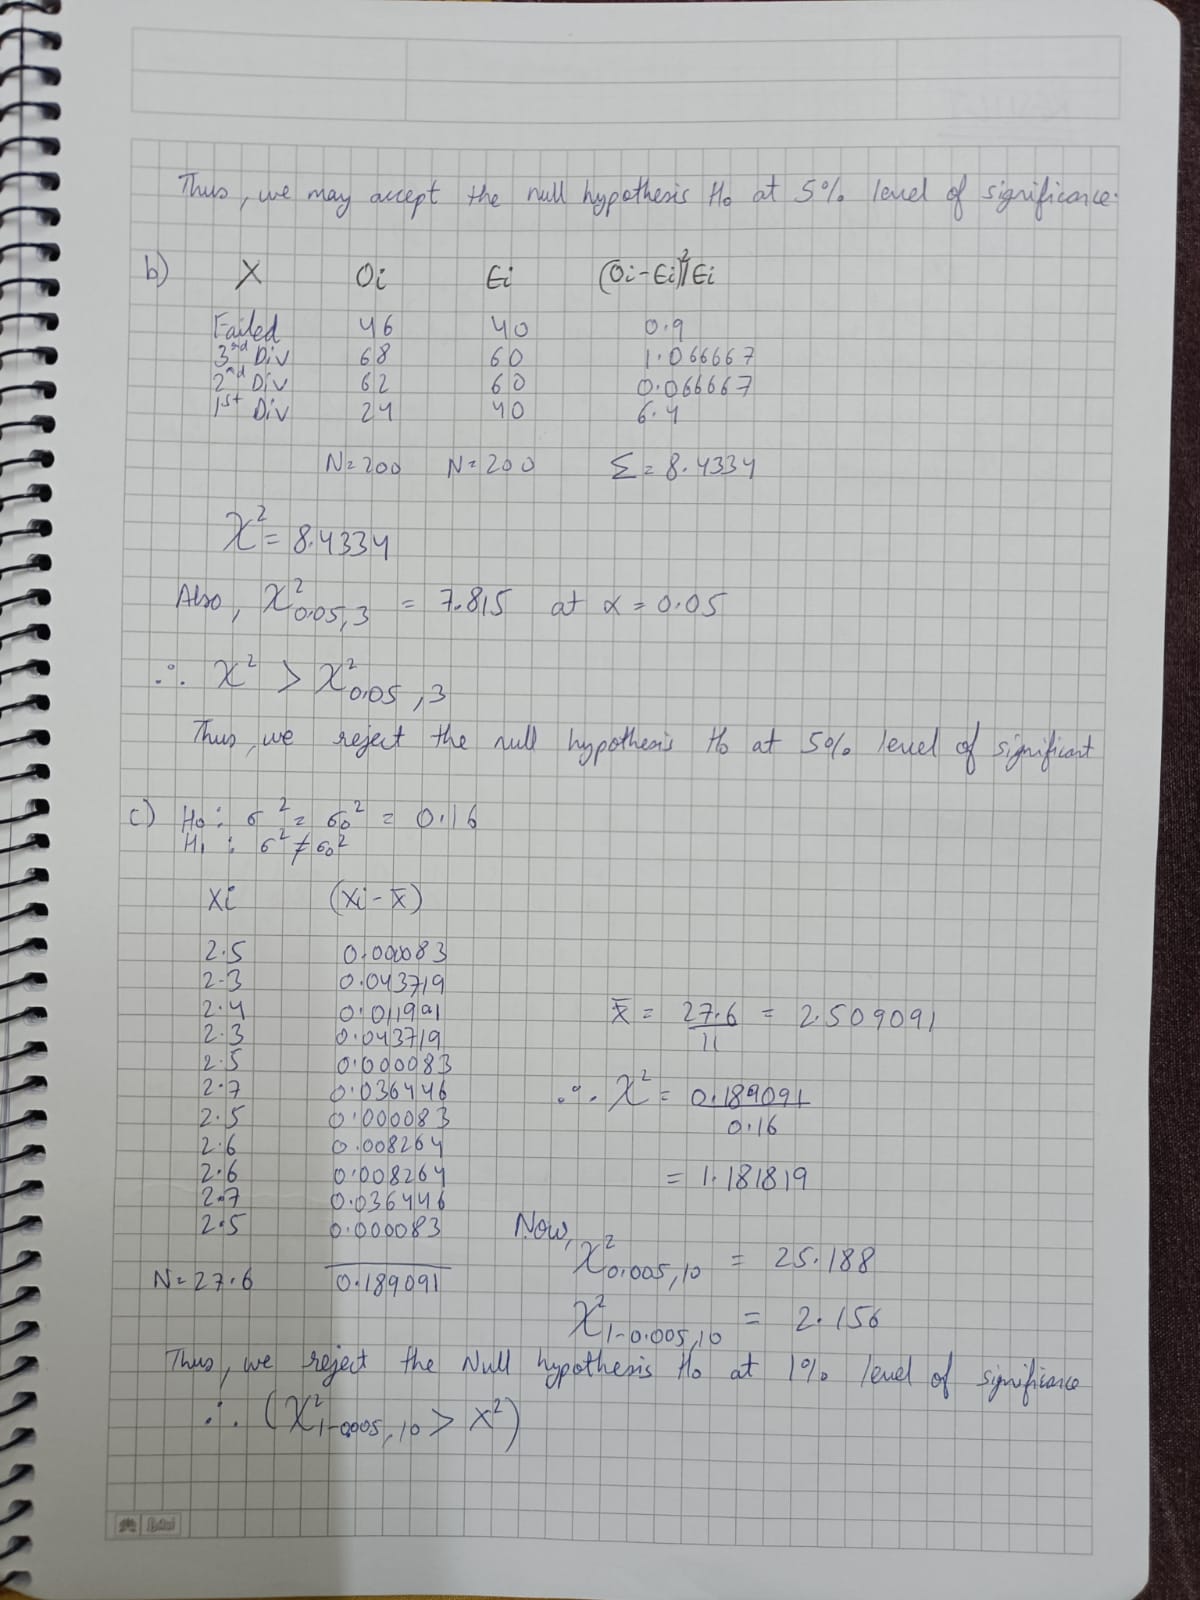 Thus, we may accept the null hypothesis H₀ at 5% level of significance.
b) X Oi Ei (Oi-Ei)²/Ei
Failed 46 40 0.9
3rd Div 68 60 1.066667
2nd Div 62 60 0.066667
1st Div 24 40 6.4
N=200 N=200 Σ=8.4334
χ²=8.4334
Also, χ²0.05,3 = 7.815 at α=0.05
∴ χ² > χ²0.05,3
Thus, we reject the null hypothesis H₀ at 5% level of significant
c) H₀: σ² = σ₀² = 0.16
H₁: σ² ≠ σ₀²
Xi (Xi-x̄)
2.5 0.000083
2.3 0.043719
2.4 0.011991
x̄ = 27.6/11 = 2.509091
2.3 0.043719
2.5 0.000083
2.7 0.036446
∴ χ² = 0.189091/0.16
2.5 0.000083
2.6 0.008264
2.6 0.008264 = 1.181819
2.7 0.036446
2.5 0.000083
Now,
χ²0.005,10 = 25.188
N=27.6 0.189091
χ²1-0.005,10 = 2.156
Thus, we reject the Null hypothesis H₀ at 1% level of significance
∴ (χ²1-0.005,10 > χ²)